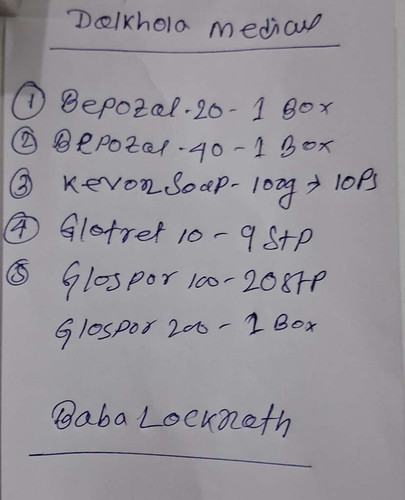 Dalkhola Medical
① Bepozal-20-1 Box
② Bepozal-40-1 Box
③ Kevon Soap-100g → 10Ps
④ Glotret 10-9 Stp
⑤ Glospor 100-20 Stp
Glospor 200-1 Box
Baba Loeknath